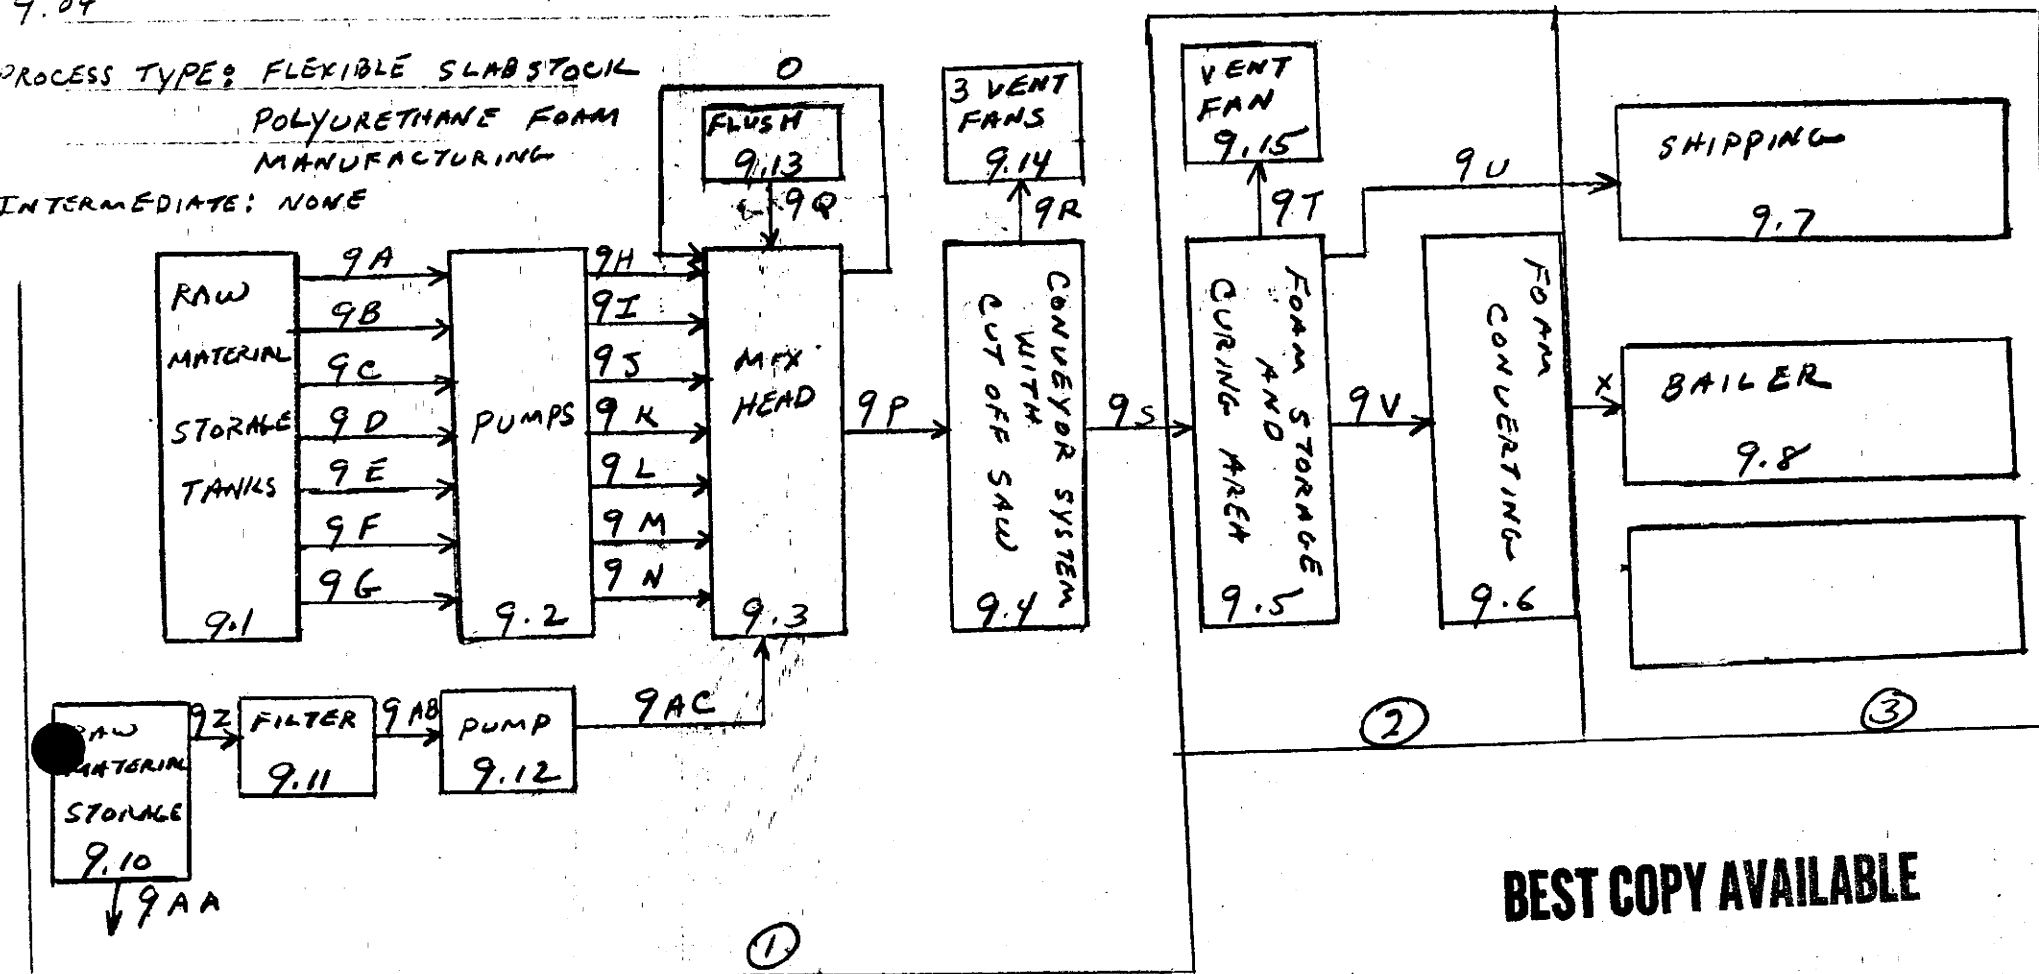 9.04
PROCESS TYPE: FLEXIBLE SLABSTOCK
POLYURETHANE FOAM
MANUFACTURING
INTERMEDIATE: NONE
O
FLUSH
9.13
9Q
3 VENT
FANS
9.14
9R
VENT
FAN
9.15
9T
9U
SHIPPING
9.7
RAW
MATERIAL
STORAGE
TANKS
9.1
9A
9B
9C
9D
9E
9F
9G
PUMPS
9.2
9H
9I
9J
9K
9L
9M
9N
MIX
HEAD
9.3
9P
CONVEYOR SYSTEM
WITH
CUT OFF SAW
9.4
9S
FOAM STORAGE
AND
CURING AREA
9.5
9V
FOAM
CONVERTING
9.6
X
BAILER
9.8
RAW
MATERIAL
STORAGE
9.10
9Z
FILTER
9.11
9AB
PUMP
9.12
9AC
9AA
1
2
3
BEST COPY AVAILABLE